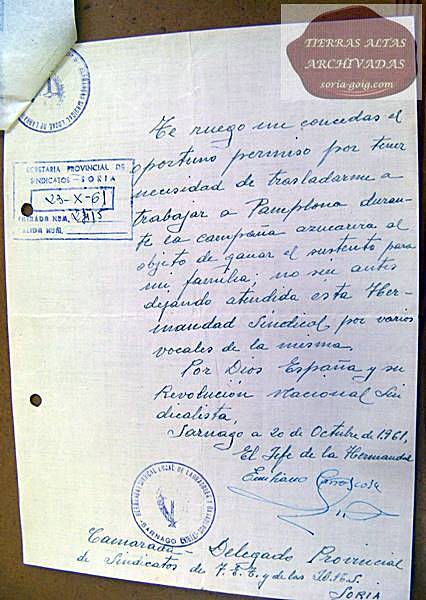 TIERRAS ALTAS
ARCHIVADAS
soria-goig.com
Te ruego me concedas el
oportuno permiso por tener
necesidad de trasladarme a
trabajar a Pamplona duran-
te la campaña azucarera al
objeto de ganar el sustento para
mi familia; no sin antes
dejando atendida esta Her-
mandad Sindical por varios
vocales de la misma.
Por Dios España y su
Revolución Nacional Sin
dicalista,
Sarnago a 20 de Octubre de 1961,
El Jefe de la Hermandad
Emiliano Carrascosa
SECRETARIA PROVINCIAL DE
SINDICATOS - SORIA
23-X-61
ENTRADA NUM.
SALIDA NUM.
HERMANDAD SINDICAL LOCAL DE LABRADORES Y GANADEROS
SARNAGO
Camarada Delegado Provincial
de Sindicatos de F.E.T. y de las J.O.N.S.
SORIA